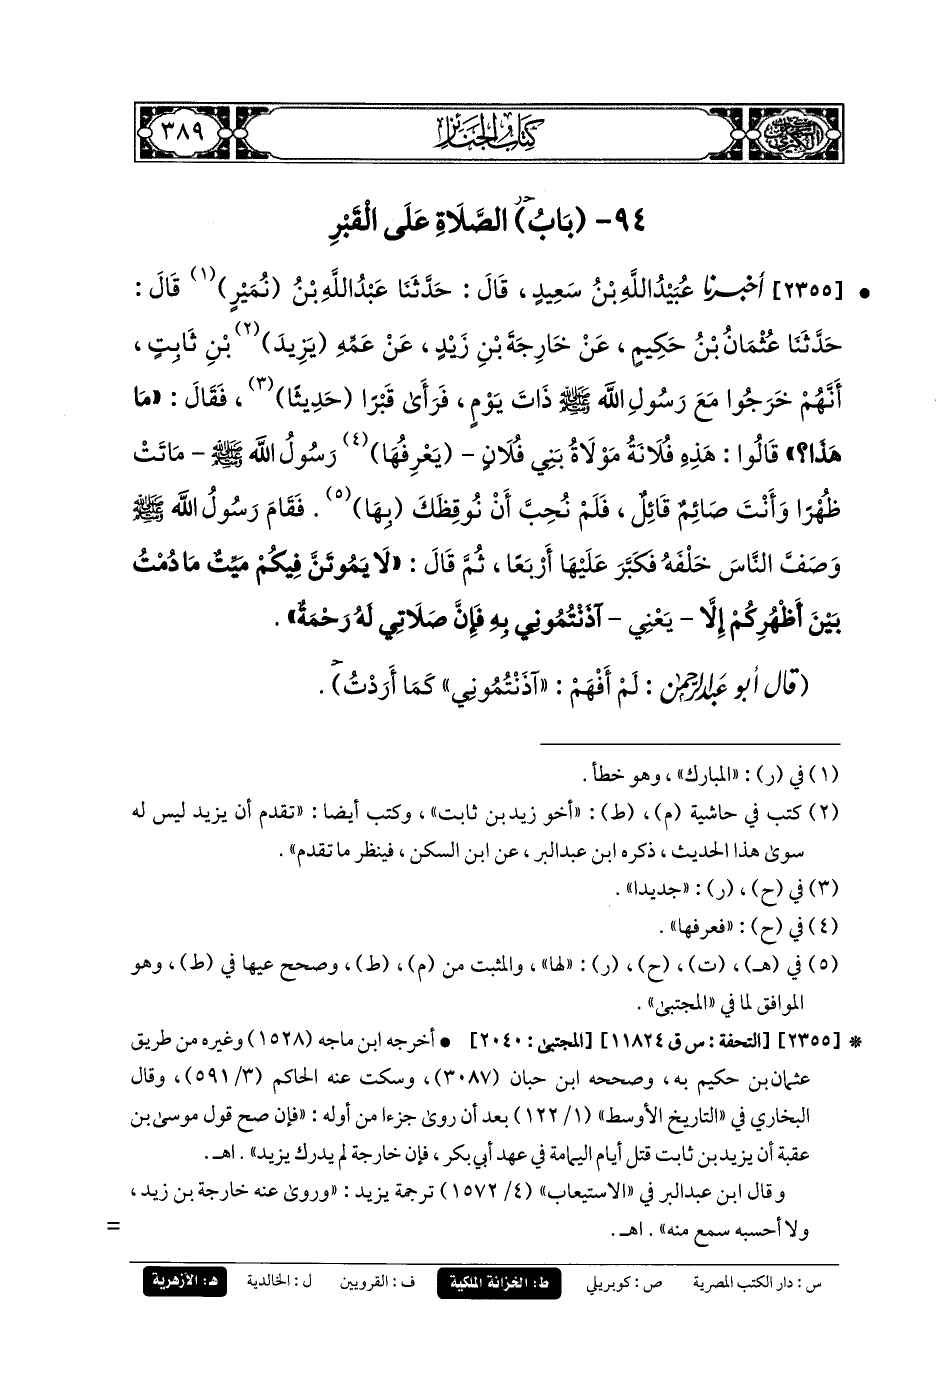 كتاب الجنائز
٣٨٩
٩٤- (بَابُ) الصَّلَاةِ عَلَى الْقَبْرِ
• [٢٣٥٥] أخبرنا عُبَيْدُاللَّهِ بْنُ سَعِيدٍ، قَالَ: حَدَّثَنَا عَبْدُاللَّهِ بْنُ (نُمَيْرٍ)(١) قَالَ:
حَدَّثَنَا عُثْمَانُ بْنُ حَكِيمٍ، عَنْ خَارِجَةَ بْنِ زَيْدٍ، عَنْ عَمِّهِ (يَزِيدَ)(٢) بْنِ ثَابِتٍ،
أَنَّهُمْ خَرَجُوا مَعَ رَسُولِ اللَّه ﷺ ذَاتَ يَوْمٍ، فَرَأَى قَبْرًا (حَدِيثًا)(٣)، فَقَالَ: «مَا
هَذَا؟» قَالُوا: هَذِهِ فُلَانَةُ مَوْلَاةُ بَنِي فُلَانٍ - (يَعْرِفُهَا)(٤) رَسُولُ اللَّه ﷺ - مَاتَتْ
ظُهْرًا وَأَنْتَ صَائِمٌ قَائِلٌ، فَلَمْ نُحِبَّ أَنْ نُوقِظَكَ (بِهَا)(٥). فَقَامَ رَسُولُ اللَّه ﷺ
وَصَفَّ النَّاسَ خَلْفَهُ فَكَبَّرَ عَلَيْهَا أَرْبَعًا، ثُمَّ قَالَ: «لَا يَمُوتَنَّ فِيكُمْ مَيِّتٌ مَا دُمْتُ
بَيْنَ أَظْهُرِكُمْ إِلَّا - يَعْنِي - آذَنْتُمُونِي بِهِ فَإِنَّ صَلَاتِي لَهُ رَحْمَةٌ».
(قال أبو عبدالرحمن: لَمْ أَفْهَمْ: «آذَنْتُمُونِي» كَمَا أَرَدْتُ).
(١) في (ر): «المبارك»، وهو خطأ.
(٢) كتب في حاشية (م)، (ط): «أخو زيد بن ثابت»، وكتب أيضا: «تقدم أن يزيد ليس له
سوى هذا الحديث، ذكره ابن عبدالبر، عن ابن السكن، فينظر ما تقدم».
(٣) في (ح)، (ر): «جديدا».
(٤) في (ح): «فعرفها».
(٥) في (هـ)، (ت)، (ح)، (ر): «لها»، والمثبت من (م)، (ط)، وصحح عيها في (ط)، وهو
الموافق لما في «المجتبى».
* [٢٣٥٥] [التحفة: س ق ١١٨٢٤] [المجتبى: ٢٠٤٠] • أخرجه ابن ماجه (١٥٢٨) وغيره من طريق
عثمان بن حكيم به، وصححه ابن حبان (٣٠٨٧)، وسكت عنه الحاكم (٣/ ٥٩١)، وقال
البخاري في «التاريخ الأوسط» (١/ ١٢٢) بعد أن روى جزءا من أوله: «فإن صح قول موسى بن
عقبة أن يزيد بن ثابت قتل أيام اليمامة في عهد أبي بكر، فإن خارجة لم يدرك يزيد». اهـ.
وقال ابن عبدالبر في «الاستيعاب» (٤/ ١٥٧٢) ترجمة يزيد: «وروى عنه خارجة بن زيد،
ولا أحسبه سمع منه». اهـ.
=
س: دار الكتب المصرية ص: كوبريلي ط: الخزانة الملكية ف: القرويين ل: الخالدية هـ: الأزهرية